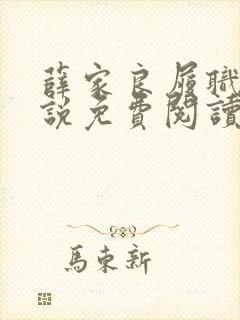 薛家良履職
說免費閱讀
馬束新